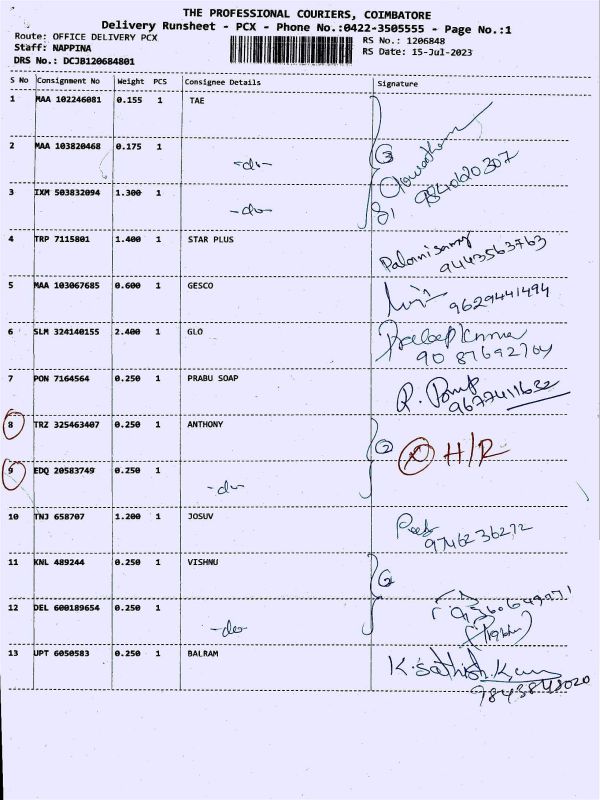 THE PROFESSIONAL COURIERS, COIMBATORE
Delivery Runsheet - PCX - Phone No.:0422-3505555 - Page No.:1
Route: OFFICE DELIVERY PCX
RS No.: 1206848
Staff: NAPPINA
RS Date: 15-Jul-2023
DRS No.: DCJB120684801
S No Consignment No Weight PCS Consignee Details Signature
1 MAA 102246081 0.155 1 TAE
2 MAA 103820468 0.175 1 -do- 3
9840620307
3 IXM 503832094 1.300 1 -do-
4 TRP 7115801 1.400 1 STAR PLUS Palanisamy
9443563763
5 MAA 103067685 0.600 1 GESCO 9629441494
6 SLM 324140155 2.400 1 GLO Pradeep Kumar
9087692764
7 PON 7164564 0.250 1 PRABU SOAP
9677411632
8 TRZ 325463407 0.250 1 ANTHONY 2 H/R
9 EDQ 20583749 0.250 1 -do-
10 TNJ 658707 1.200 1 JOSUV
9746236272
11 KNL 489244 0.250 1 VISHNU 2
12 DEL 600189654 0.250 1 -do-
13 UPT 6050583 0.250 1 BALRAM K. Sathish Kumar
9843848020